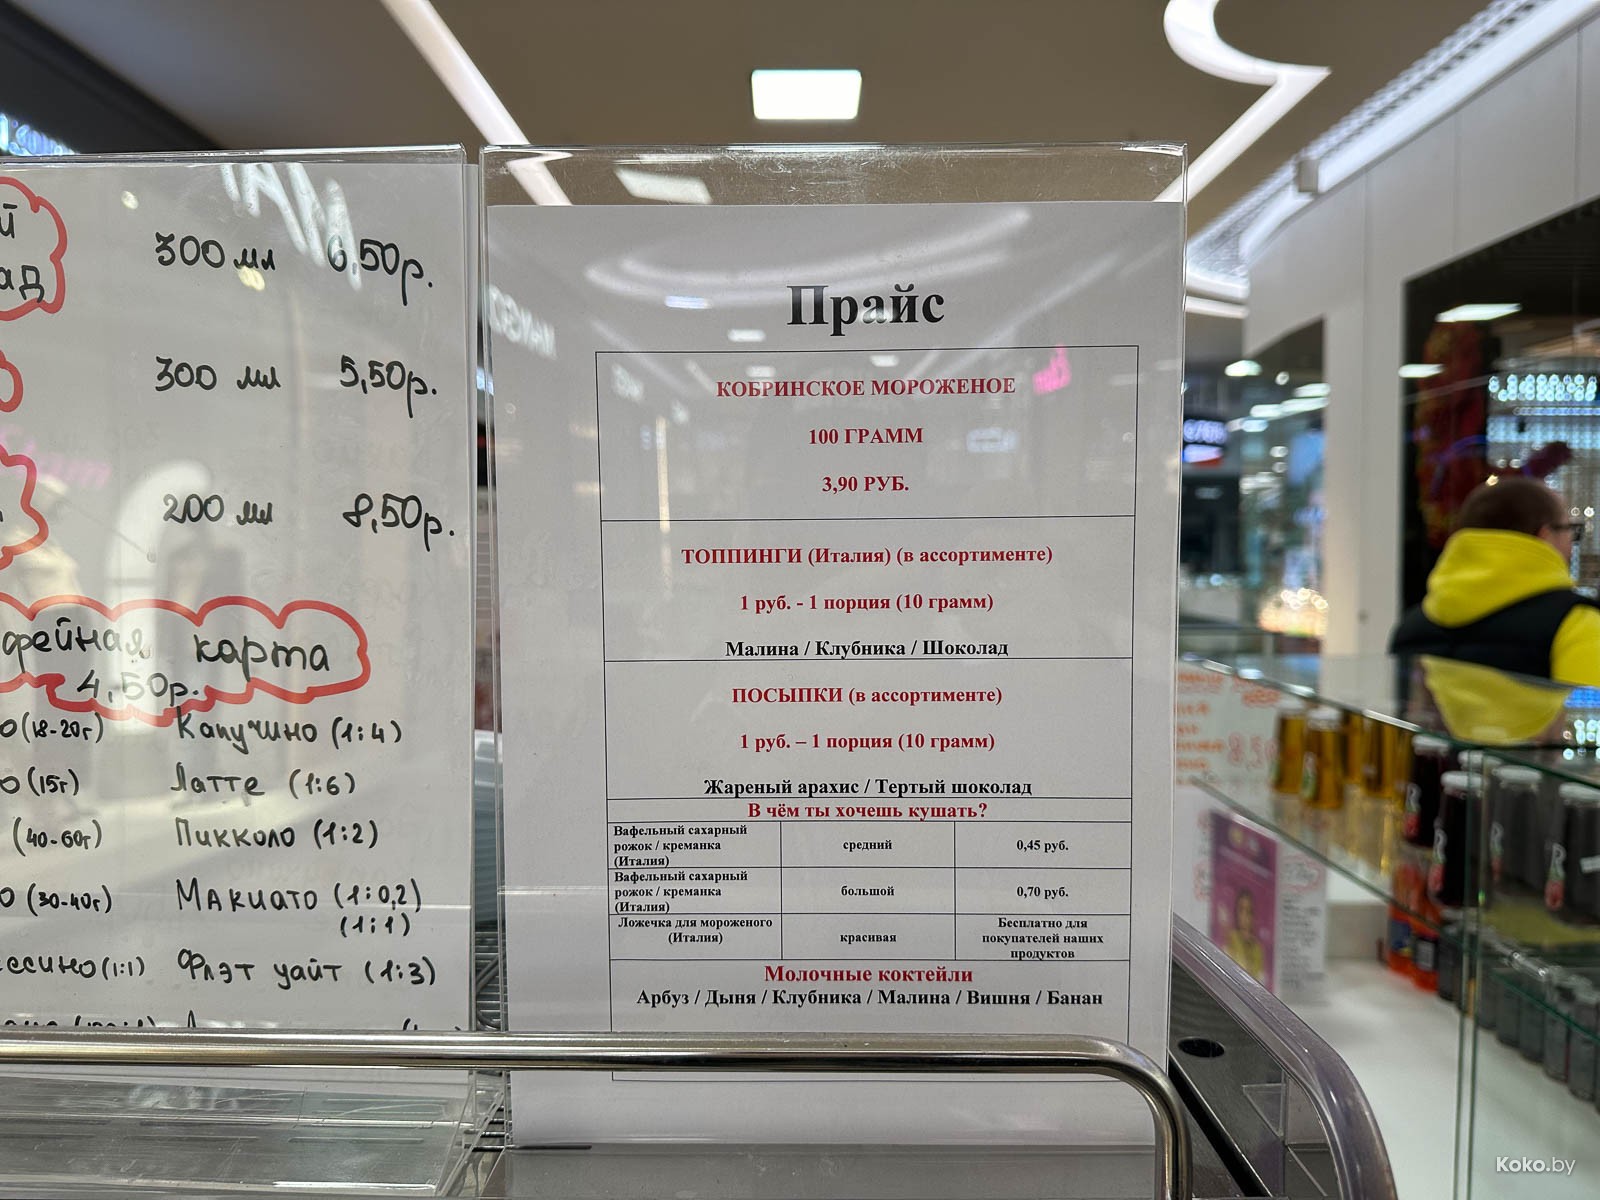 300 мл 6,50р.
300 мл 5,50р.
200 мл 8,50р.
карта
4,50р.
(18-20г) Капучино (1:4)
(15г) Латте (1:6)
(40-60г) Пикколо (1:2)
(30-40г) Макиато (1:0,2)
(1:1)
(1:1) Флэт уайт (1:3)
Прайс
КОБРИНСКОЕ МОРОЖЕНОЕ
100 ГРАММ
3,90 РУБ.
ТОППИНГИ (Италия) (в ассортименте)
1 руб. - 1 порция (10 грамм)
Малина / Клубника / Шоколад
ПОСЫПКИ (в ассортименте)
1 руб. – 1 порция (10 грамм)
Жареный арахис / Тертый шоколад
В чём ты хочешь кушать?
Вафельный сахарный
рожок / креманка
(Италия)
средний
0,45 руб.
Вафельный сахарный
рожок / креманка
(Италия)
большой
0,70 руб.
Ложечка для мороженого
(Италия)
красивая
Бесплатно для
покупателей наших
продуктов
Молочные коктейли
Арбуз / Дыня / Клубника / Малина / Вишня / Банан
Koko.by